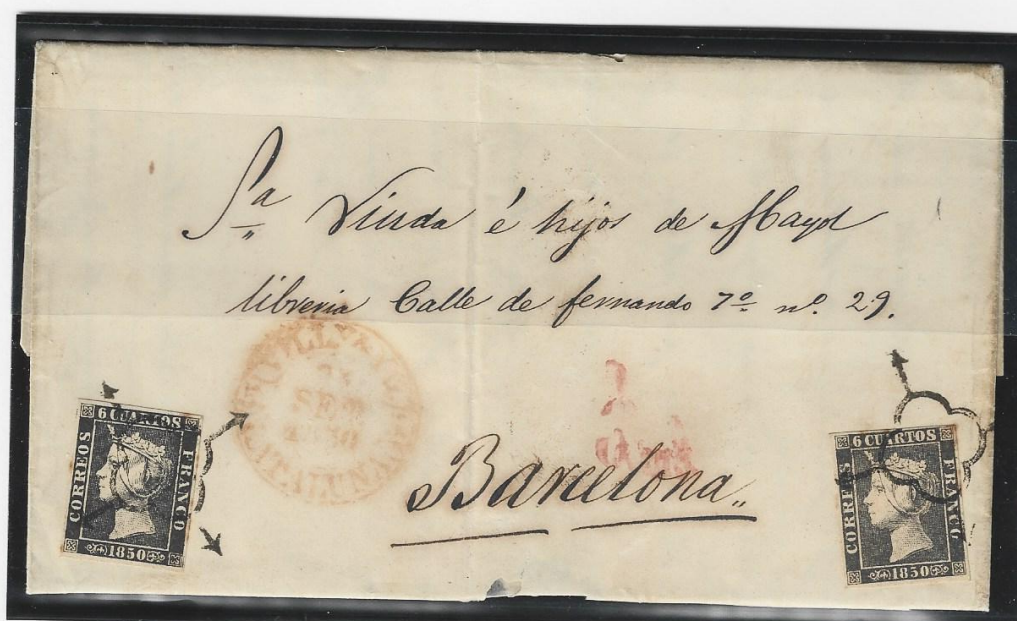 Sa Viuda é hijos de Mayol
libreria Calle de fernando 7º nº 29.
Barcelona
6 CUARTOS
CORREOS
FRANCO
1850
SET
CATALUÑA
6 CUARTOS
CORREOS
FRANCO
1850